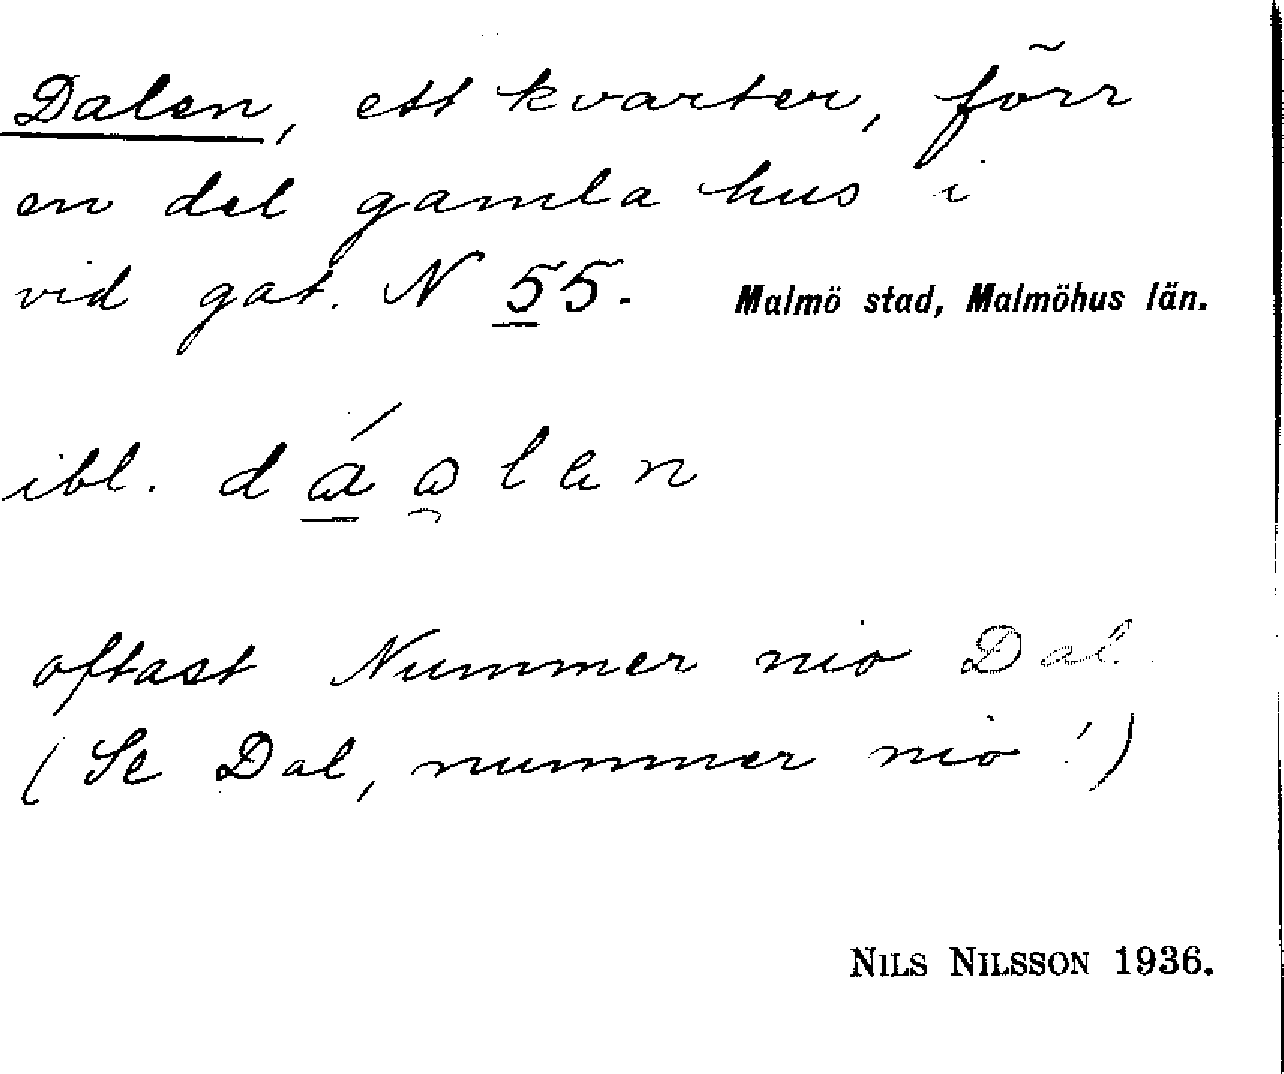 Dalen, ett kvarter, förr
en del gamla hus i
vid gat. N 55. Malmö stad, Malmöhus län.
ibl.
oftast Nummer nio Dal.
(Se Dal, nummer nio!)
NILS NILSSON 1936.